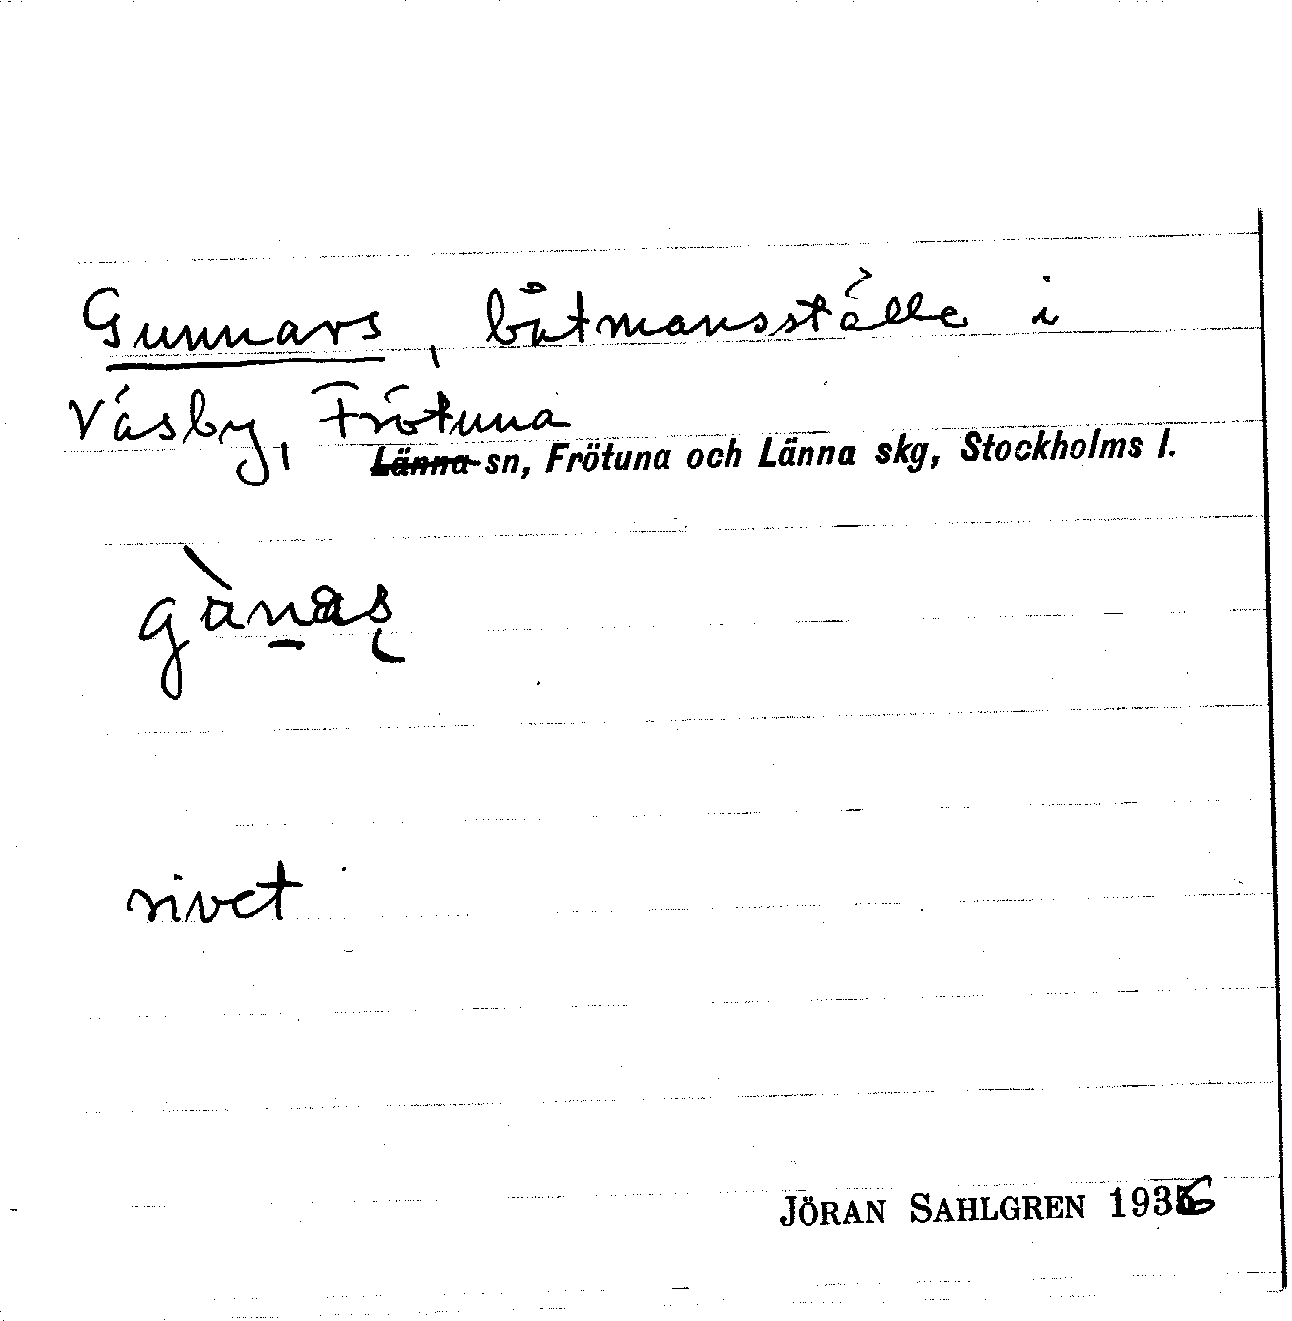 Gunnars, båtmansställe i
Väsby, Frötuna
Länna sn, Frötuna och Länna skg, Stockholms l.
gànas
rivet
JÖRAN SAHLGREN 1936